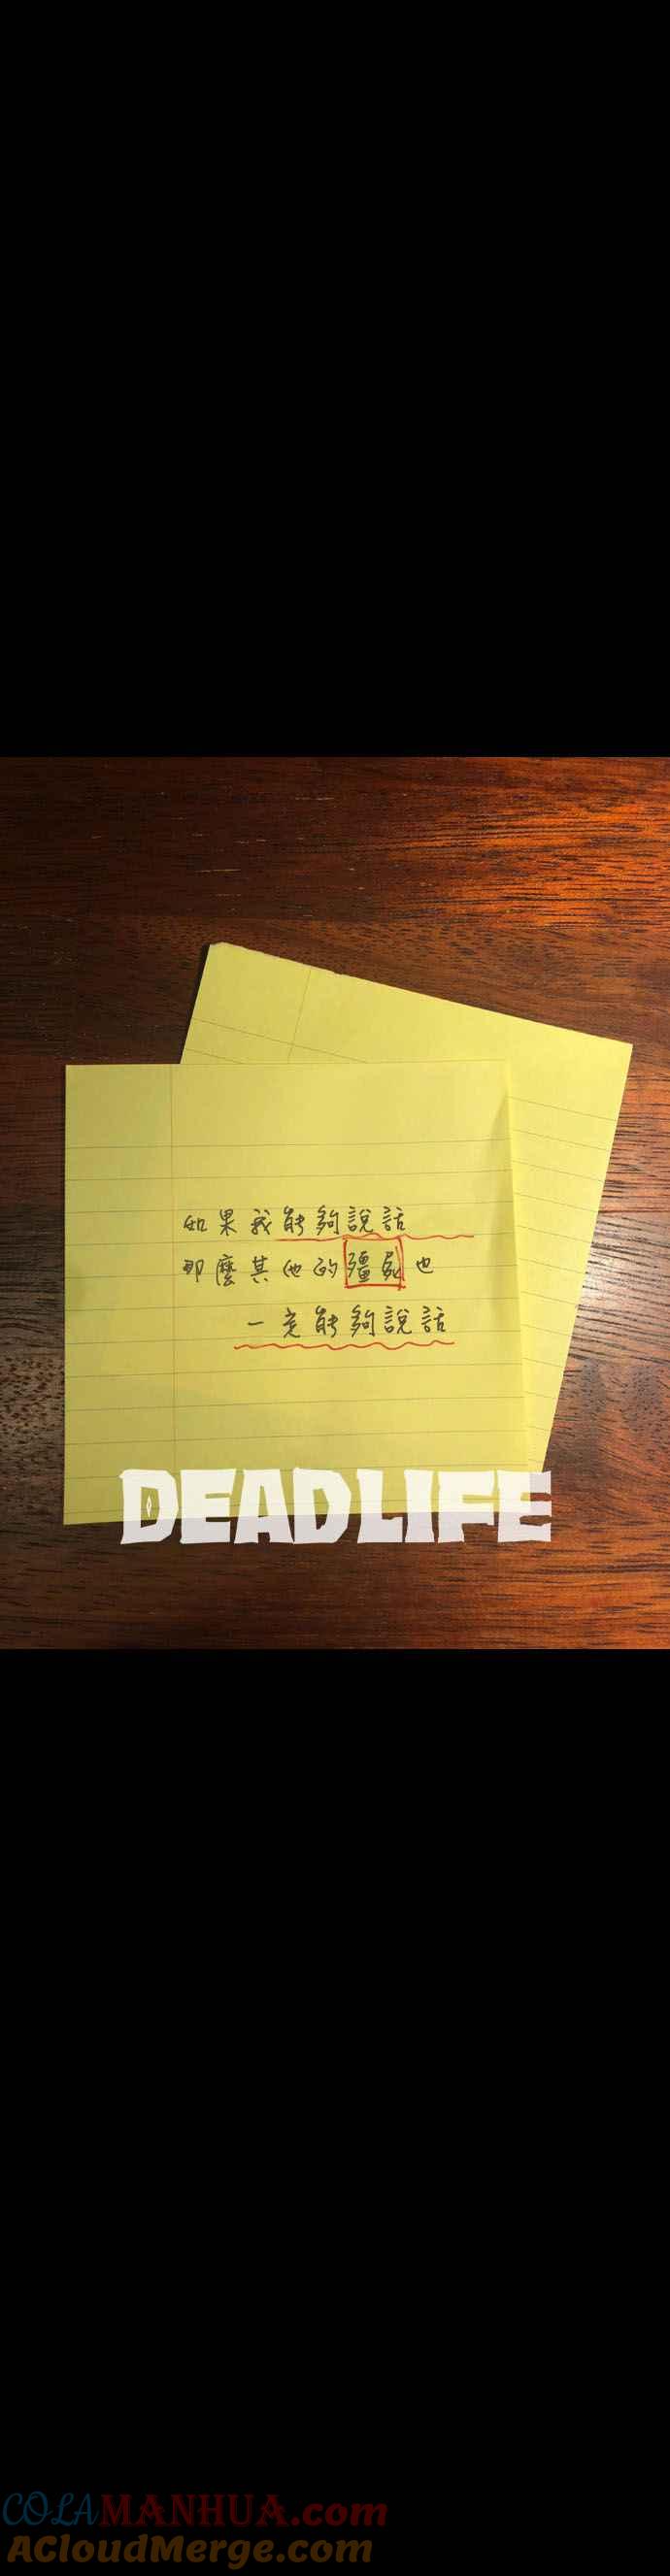 如果我能夠說話
那麼其他的殭屍也
一定能夠說話
DEADLIFE
COLAMANHUA.com
ACloudMerge.com